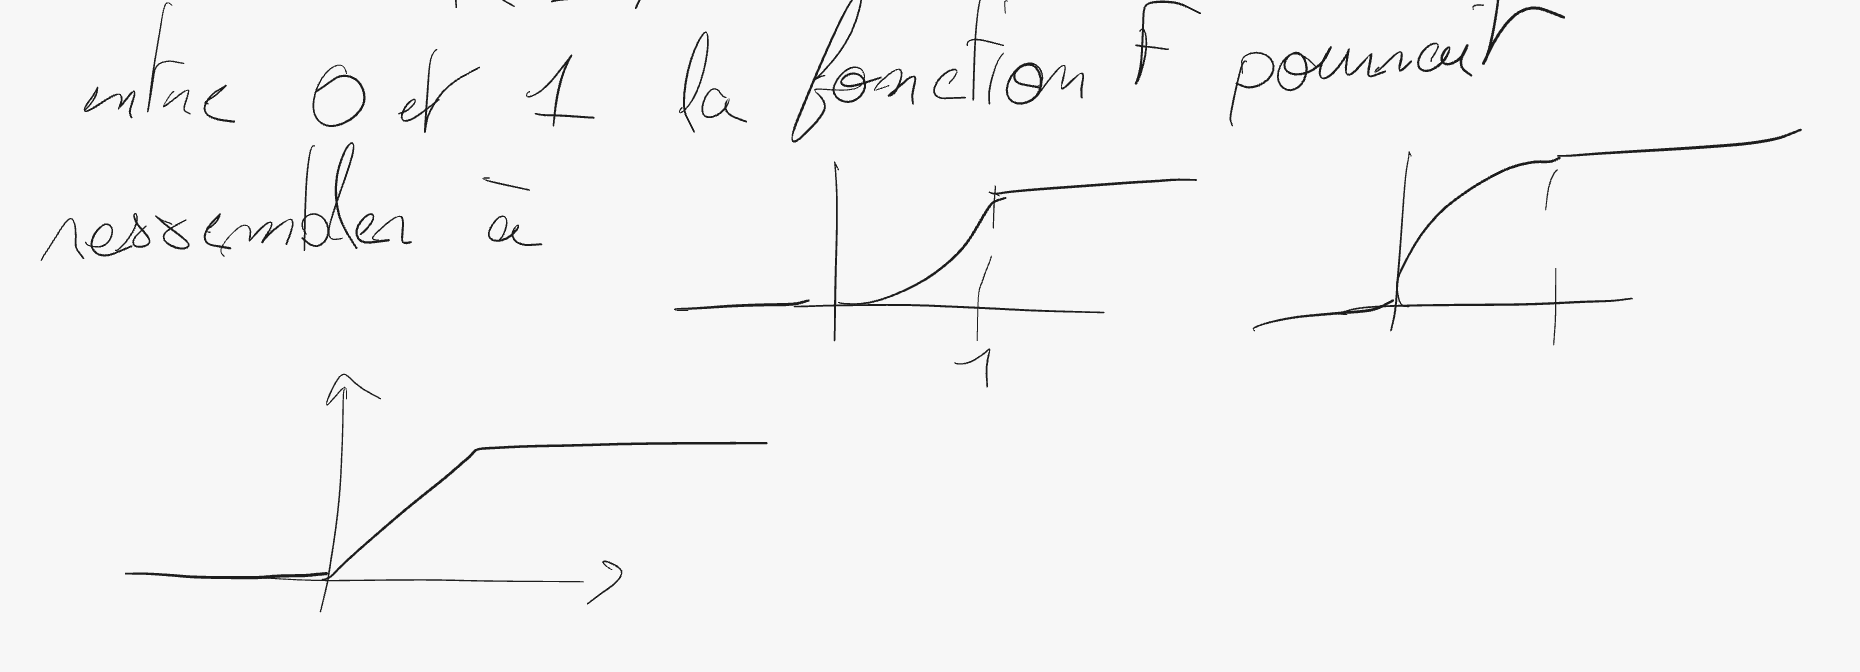 entre 0 et 1 la fonction F pourrait
ressembler à
1